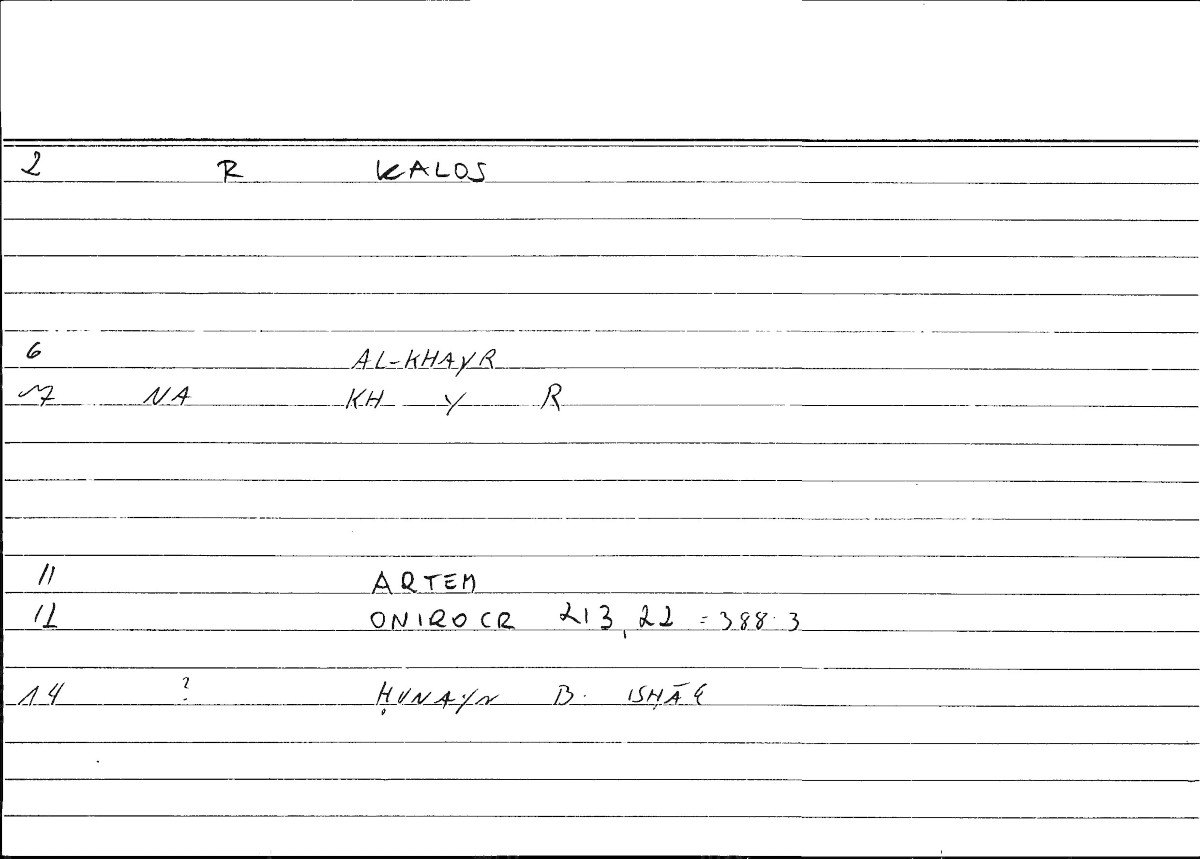 2 R KALOS
6 AL-KHAYR
7 NA KH Y R
11 ARTEM
12 ONIROCR 213,22 = 388.3
14 ? ḤUNAYN B. ISḤĀQ